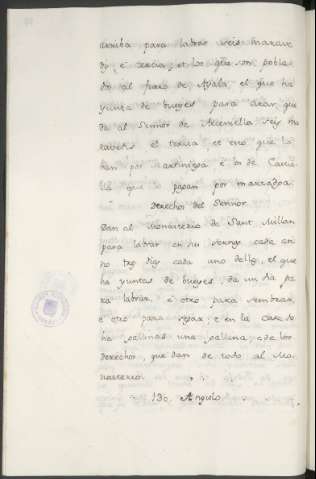 arriba para labrar seis marave
dis, é tercia; et los que son pobla
do al fuero de Ayala, el que ha
yunta de bueyes para arar, que
dá al Sennor de Mormilla seis ma
ravedis el tercia, et eso que lo
dan por martiniega é los de
que pagan por marzadga.
Derechos del Sennor.
Dan al Monasterio de Sant Millan
para labrar en su serna cada an
no tres dias cada uno dellos, el que
ha yuntas de bueyes, da un dia pa
ra labrar, é otro para sembrar,
é otro para segar; é en la casa do
ha gallinas una gallina, é de los
derechos, que dan de todo al Mo
nasterio.
130. Angulo.